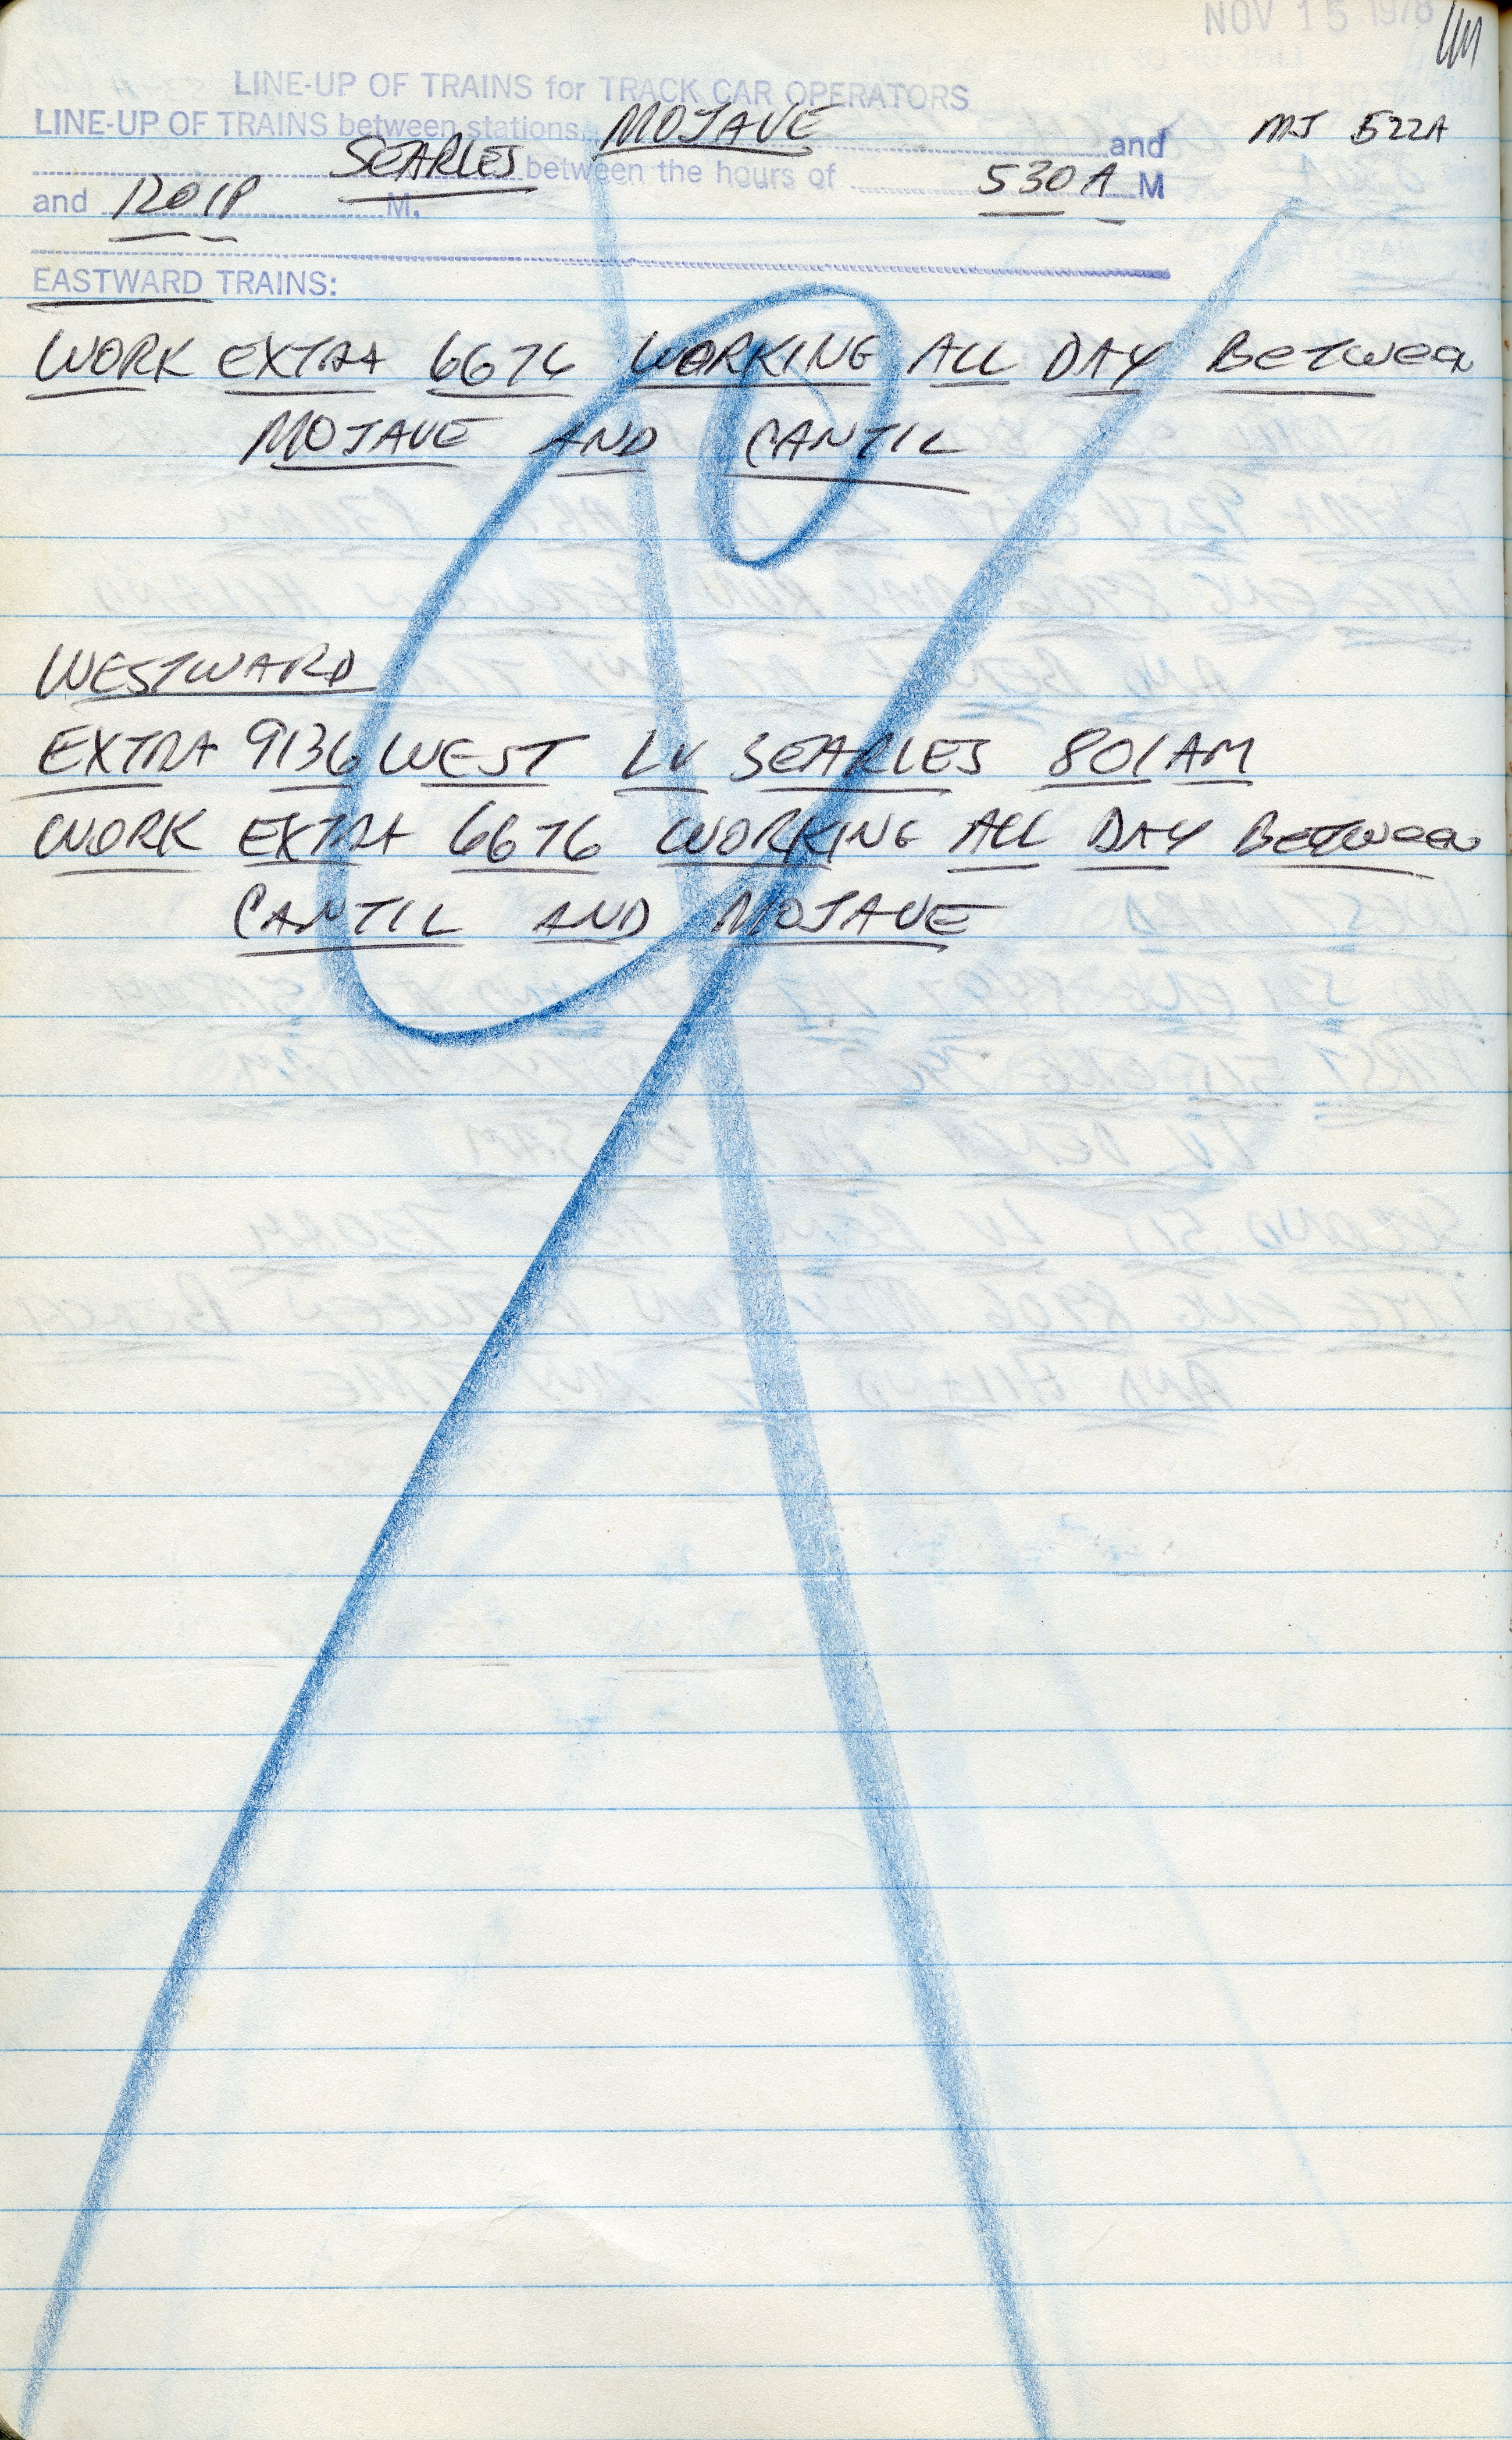 NOV 15 1978
LINE-UP OF TRAINS for TRACK CAR OPERATORS
LINE-UP OF TRAINS between stations MOJAVE and MJ 522A
SEARLES between the hours of 530 A M
and 1201P M.
EASTWARD TRAINS:
WORK EXTRA 6676 WORKING ALL DAY BETWEEN
MOJAVE AND CANTIL
WESTWARD
EXTRA 9136 WEST LV SEARLES 801AM
WORK EXTRA 6676 WORKING ALL DAY BETWEEN
CANTIL AND MOJAVE